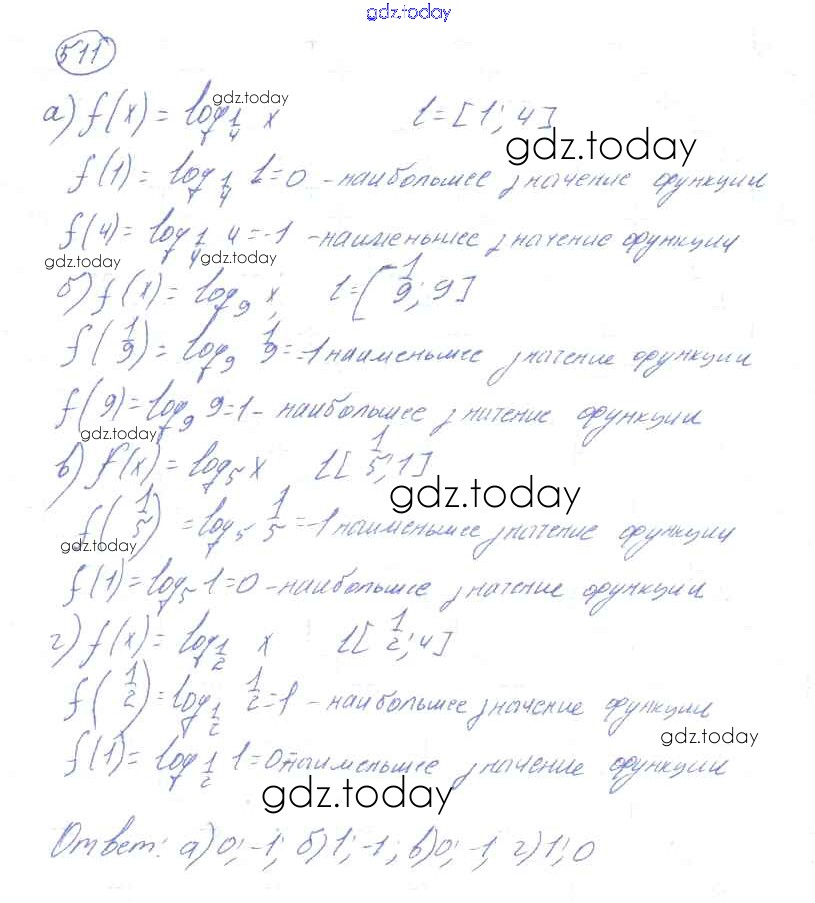 gdz.today
511
а) f(x) = log_{1/4} x   l = [1; 4]
gdz.today
gdz.today
f(1) = log_{1/4} 1 = 0 - наибольшее значение функции
f(4) = log_{1/4} 4 = -1 - наименьшее значение функции
gdz.today gdz.today
б) f(x) = log_9 x,   l = [1/9; 9]
f(1/9) = log_9 1/9 = -1 наименьшее значение функции
f(9) = log_9 9 = 1 - наибольшее значение функции
gdz.today
в) f(x) = log_5 x   l [1/5; 1]
gdz.today
f(1/5) = log_5 1/5 = -1 наименьшее значение функции
gdz.today
f(1) = log_5 1 = 0 - наибольшее значение функции
г) f(x) = log_{1/2} x   l [1/2; 4]
f(1/2) = log_{1/2} 1/2 = 1 - наибольшее значение функции
gdz.today
f(1) = log_{1/2} 1 = 0 - наименьшее значение функции
gdz.today
Ответ: а) 0; -1; б) 1; -1; в) 0; -1; г) 1; 0